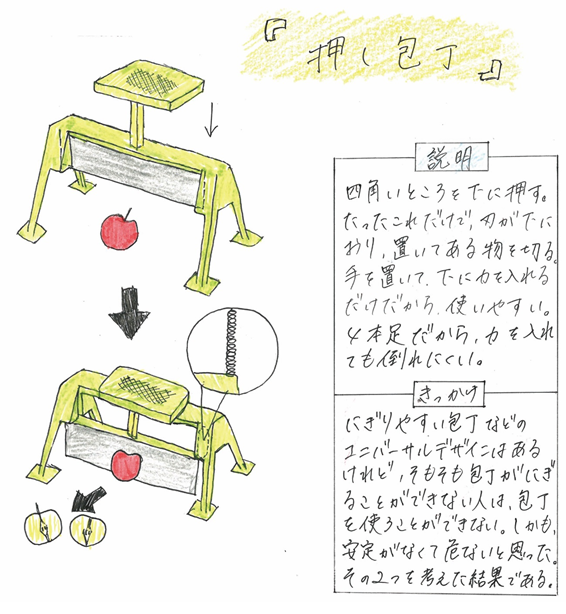 『押し包丁』
説明
四角いところを下に押す。
たったこれだけで、刃が下に
おり、置いてある物を切る。
手を置いて、下に力を入れる
だけだから、使いやすい。
4本足だから、力を入れ
ても倒れにくい。
きっかけ
にぎりやすい包丁などの
ユニバーサルデザインはある
けれど、そもそも包丁がにぎ
ることができない人は、包丁
を使うことができない。しかも、
安定がなくて危ないと思った。
その2つを考えた結果である。